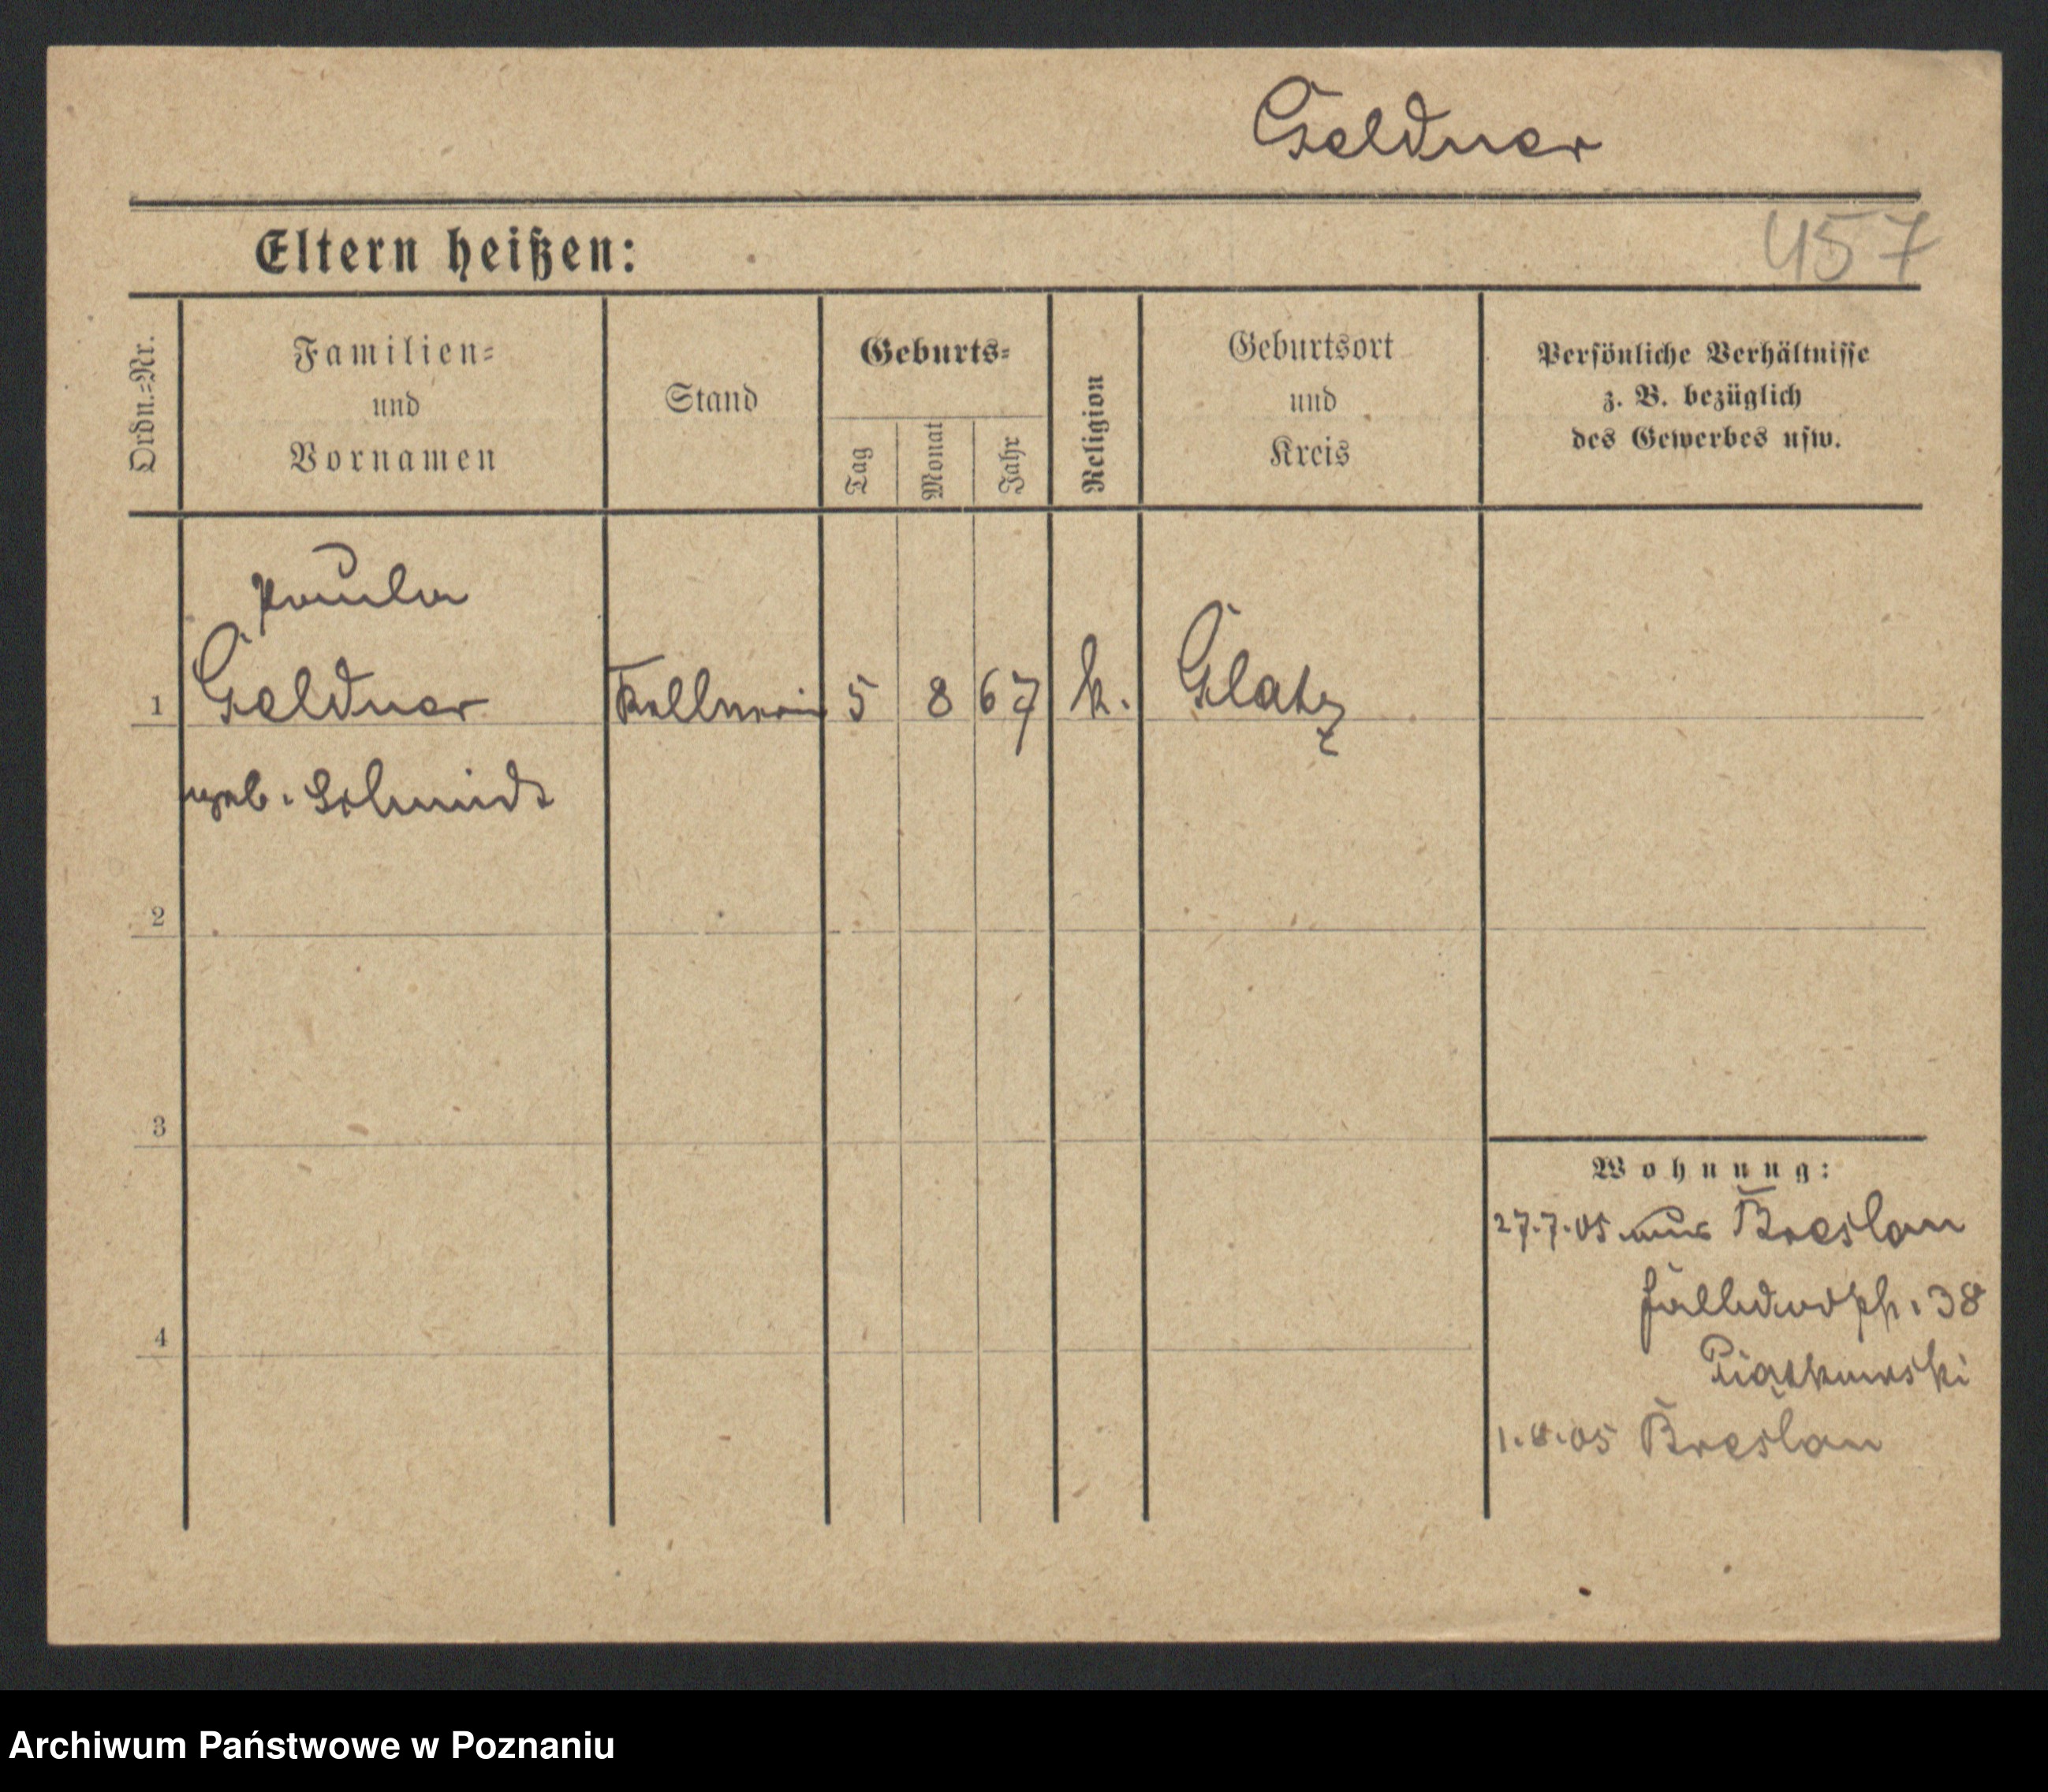 Geldner
Eltern heißen:
457
Ordn.=Nr.
Familien=
und
Vornamen
Stand
Geburts=
Tag
Monat
Jahr
Religion
Geburtsort
und
Kreis
Persönliche Verhältnisse
z. B. bezüglich
des Gewerbes usw.
Paula
1 Geldner Kellnerin 5 8 67 k. Glatz
geb. Schmidt
2
3
4
Wohnung:
27.7.05 aus Breslau
38
Piątkowski
1.8.05 Breslau
Archiwum Państwowe w Poznaniu